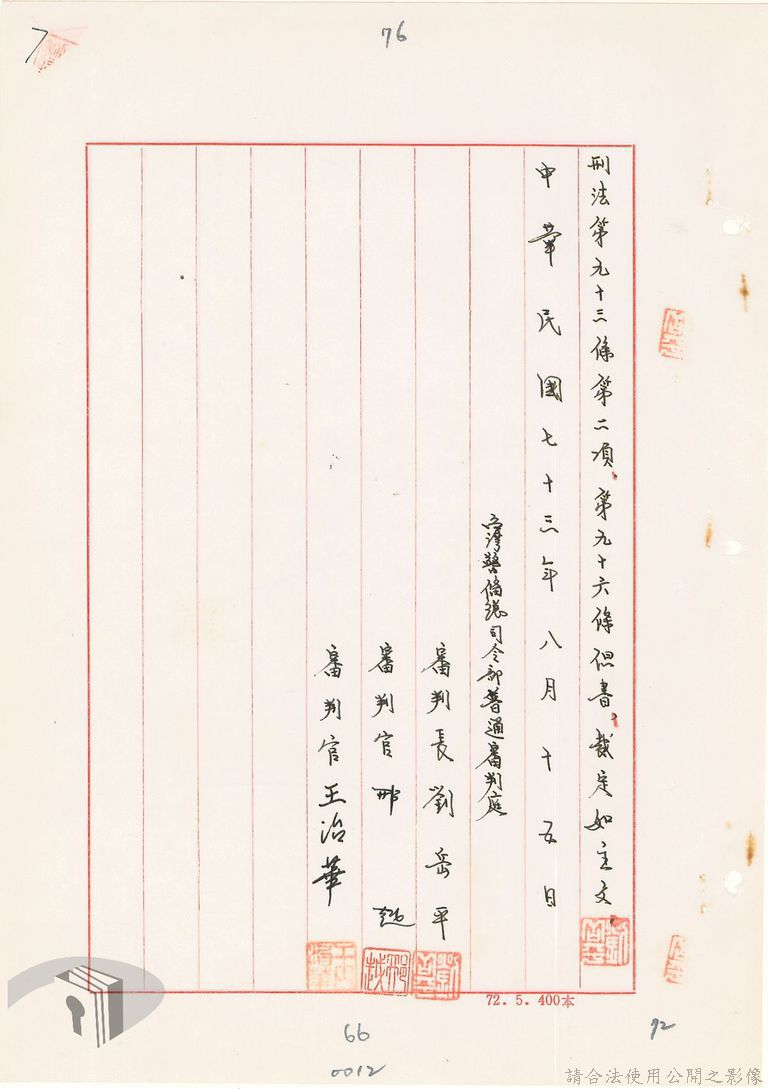 76
刑法第九十三條第二項、第九十六條但書、裁定如主文。
中華民國七十三年八月十五日
台灣警備總司令部普通審判庭
審判長劉岳平
審判官邢越
審判官王治華
72.5.400本
66
72
0012
請合法使用公開之影像